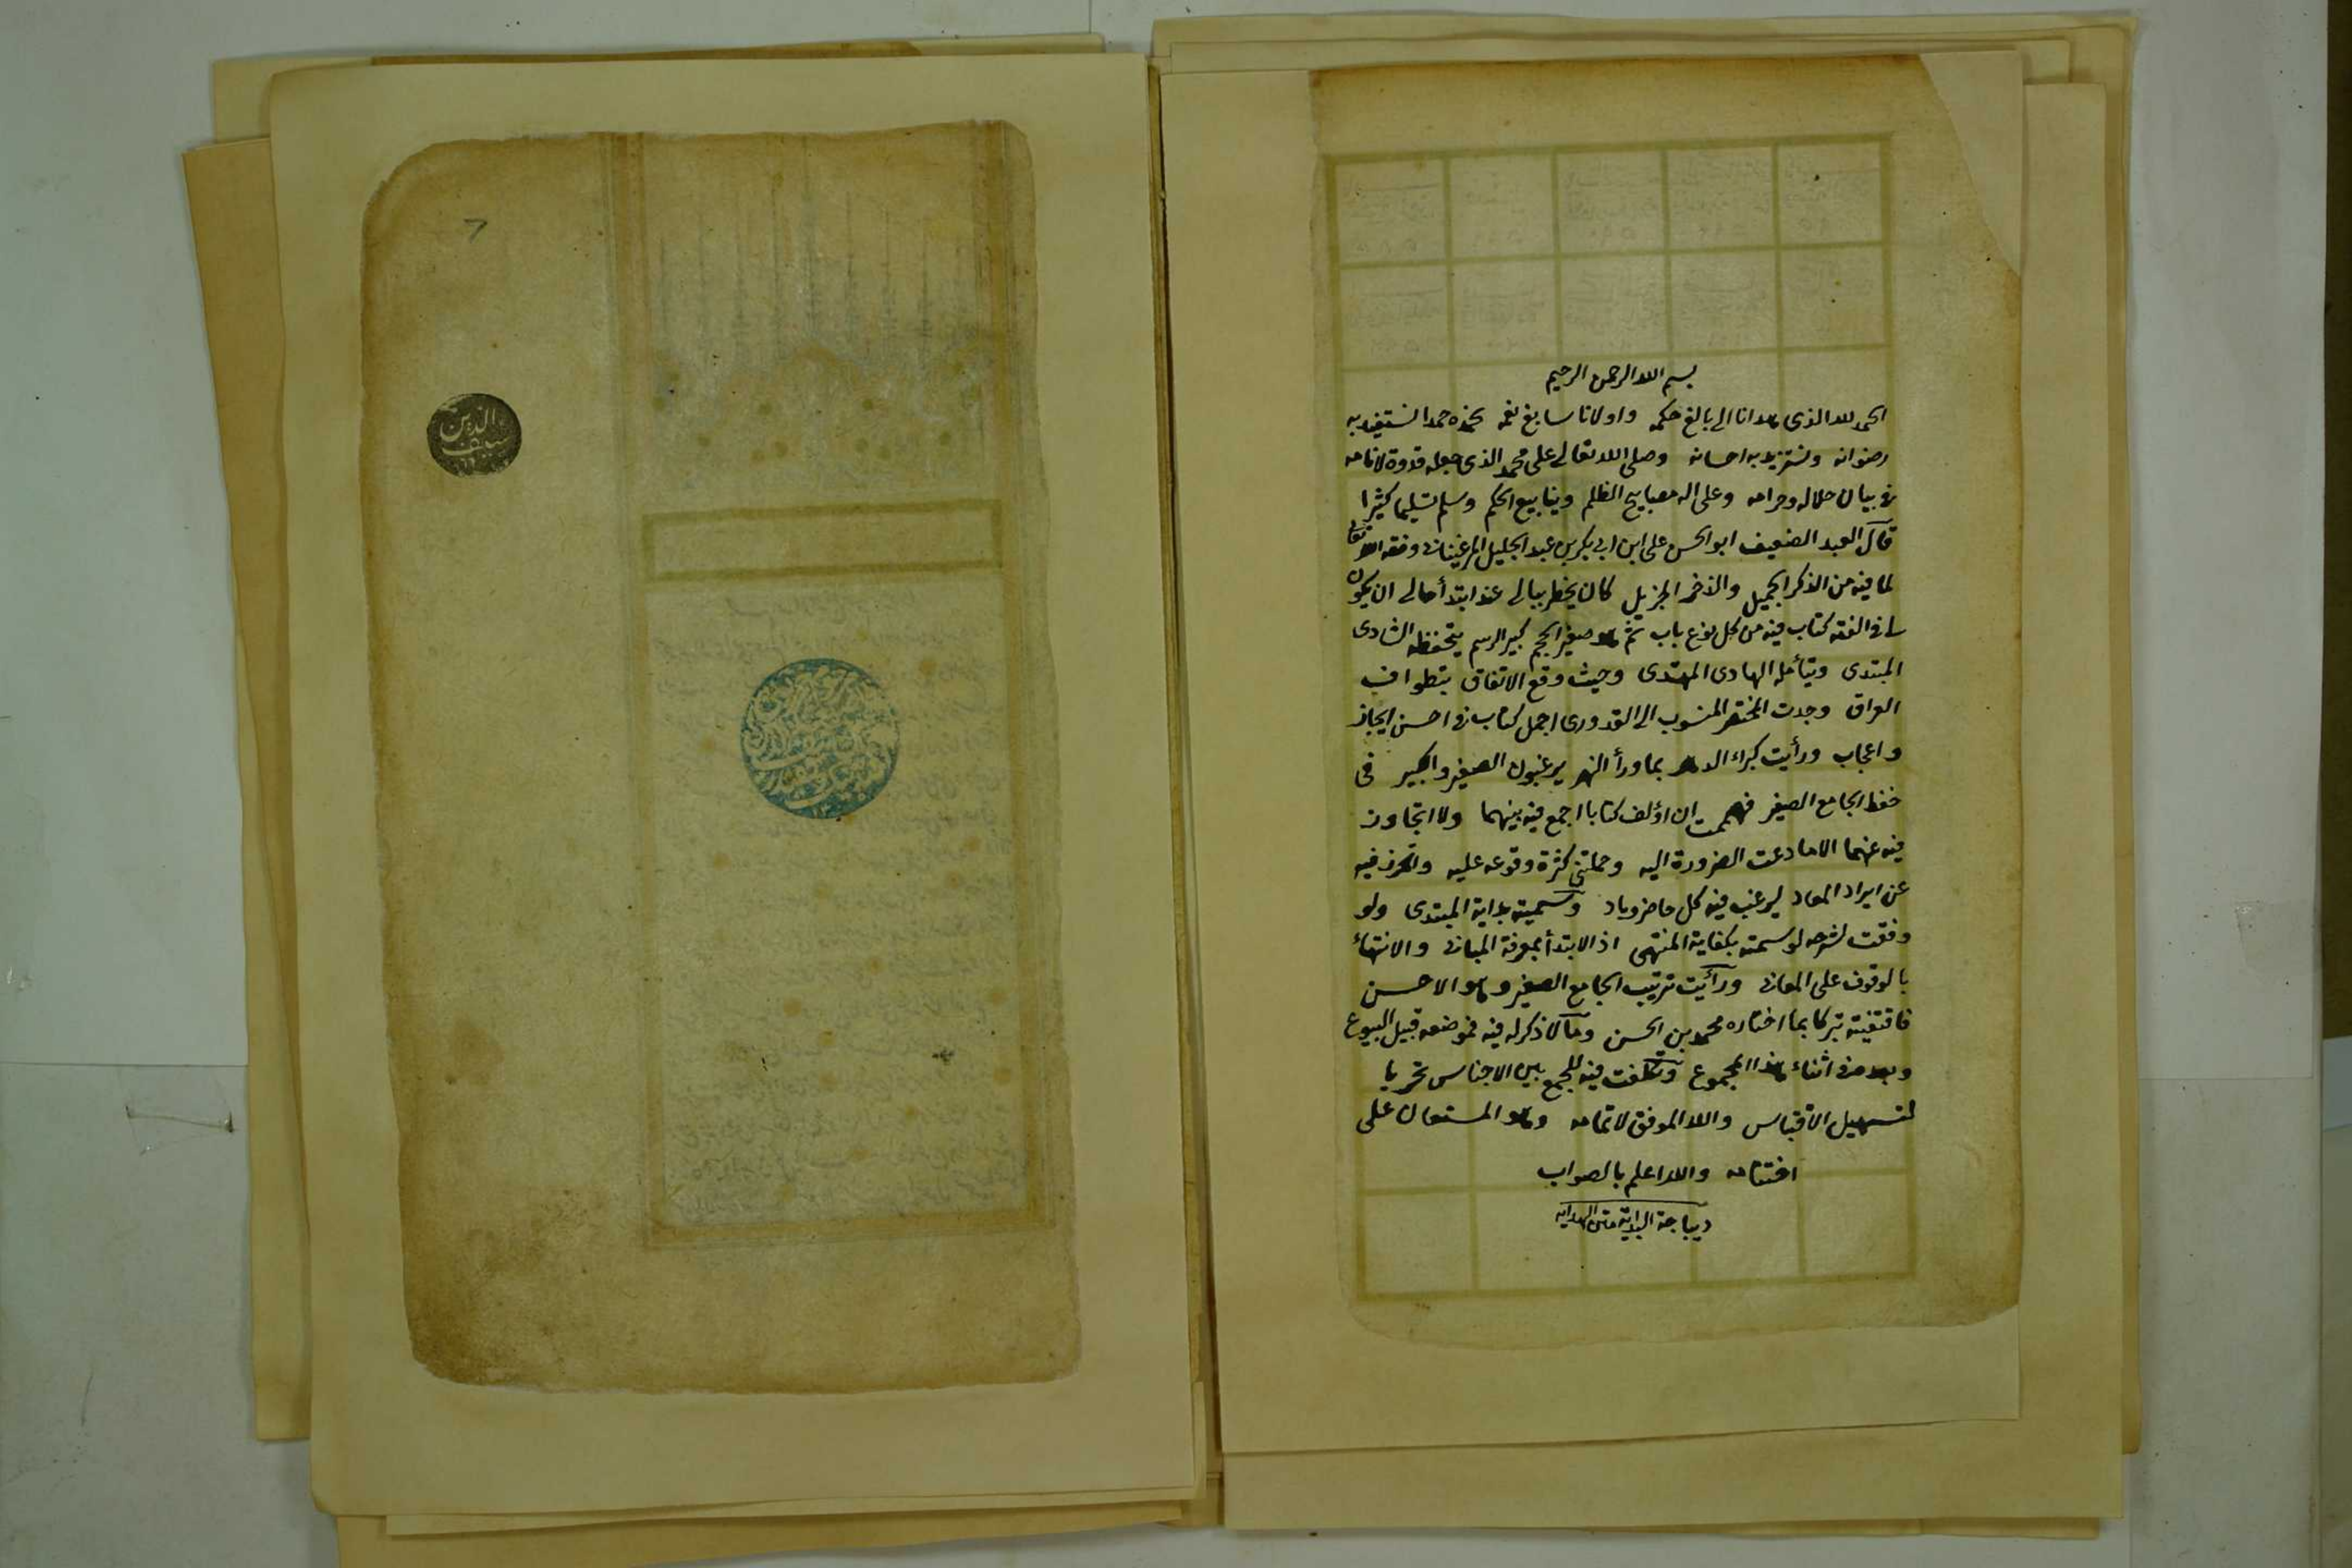 بسم الله الرحمن الرحيم
الحمد لله الذى هدانا الى بالغ حكمه واولانا سابغ نعمه نحمده حمدا نستفيد به
رضوانه ونستزيد به احسانه وصلى الله تعالى على محمد الذى جعله قدوة لانامه
فى بيان حلاله وحرامه وعلى اله مصابيح الظلم وينابيع الحكم وسلم تسليما كثيرا
قال العبد الضعيف ابو الحسن على ابن ابى بكر بن عبد الجليل المرغينانى وفقه الله تعالى
لما فيه من الذكر الجميل والذخر الجزيل كان يخطر ببالى عند ابتدأ حالى ان يكون
لى فى الفقه كتاب فيه من كل نوع باب ثم هو صغير الحجم كبير الرسم يتحفظه الشادى
المبتدى ويتأمله الهادى المهتدى وحيث وقع الاتفاق بتطواف
العراق وجدت المختصر المنسوب الى القدورى اجمل كتاب فى احسن ايجاز
واعجاب ورأيت كبراء الدهر بماورأ النهر يرغبون الصغير والكبير فى
حفظ الجامع الصغير فهممت ان اؤلف كتابا اجمع فيه بينهما ولا اتجاوز
فيه عنهما الا ما دعت الضرورة اليه وحملتنى كثرة وقوعه عليه وتحرز فيه
عن ايراد المعاد ليرغب فيه كل حاضر وباد وسميته بداية المبتدى ولو
وفقت لشرحه لوسمته بكفاية المنتهى اذ الابتدأ بمعرفة المبانى والانتهاء
بالوقوف على المعانى ورأيت ترتيب الجامع الصغير وهو الاحسن
فاقتفيته تبركا بما اختاره محمد بن الحسن وما لا ذكر له فيه فموضعه قبيل البيوع
وبعده فى اثناء هذا المجموع وتكلفت فيه للجمع بين الاجناس تحريا
لتسهيل الاقتباس والله الموفق لاتمامه وهو المستعان على
اختتامه والله اعلم بالصواب
ديباجة البداية متن الهداية
٦
سيف الدين